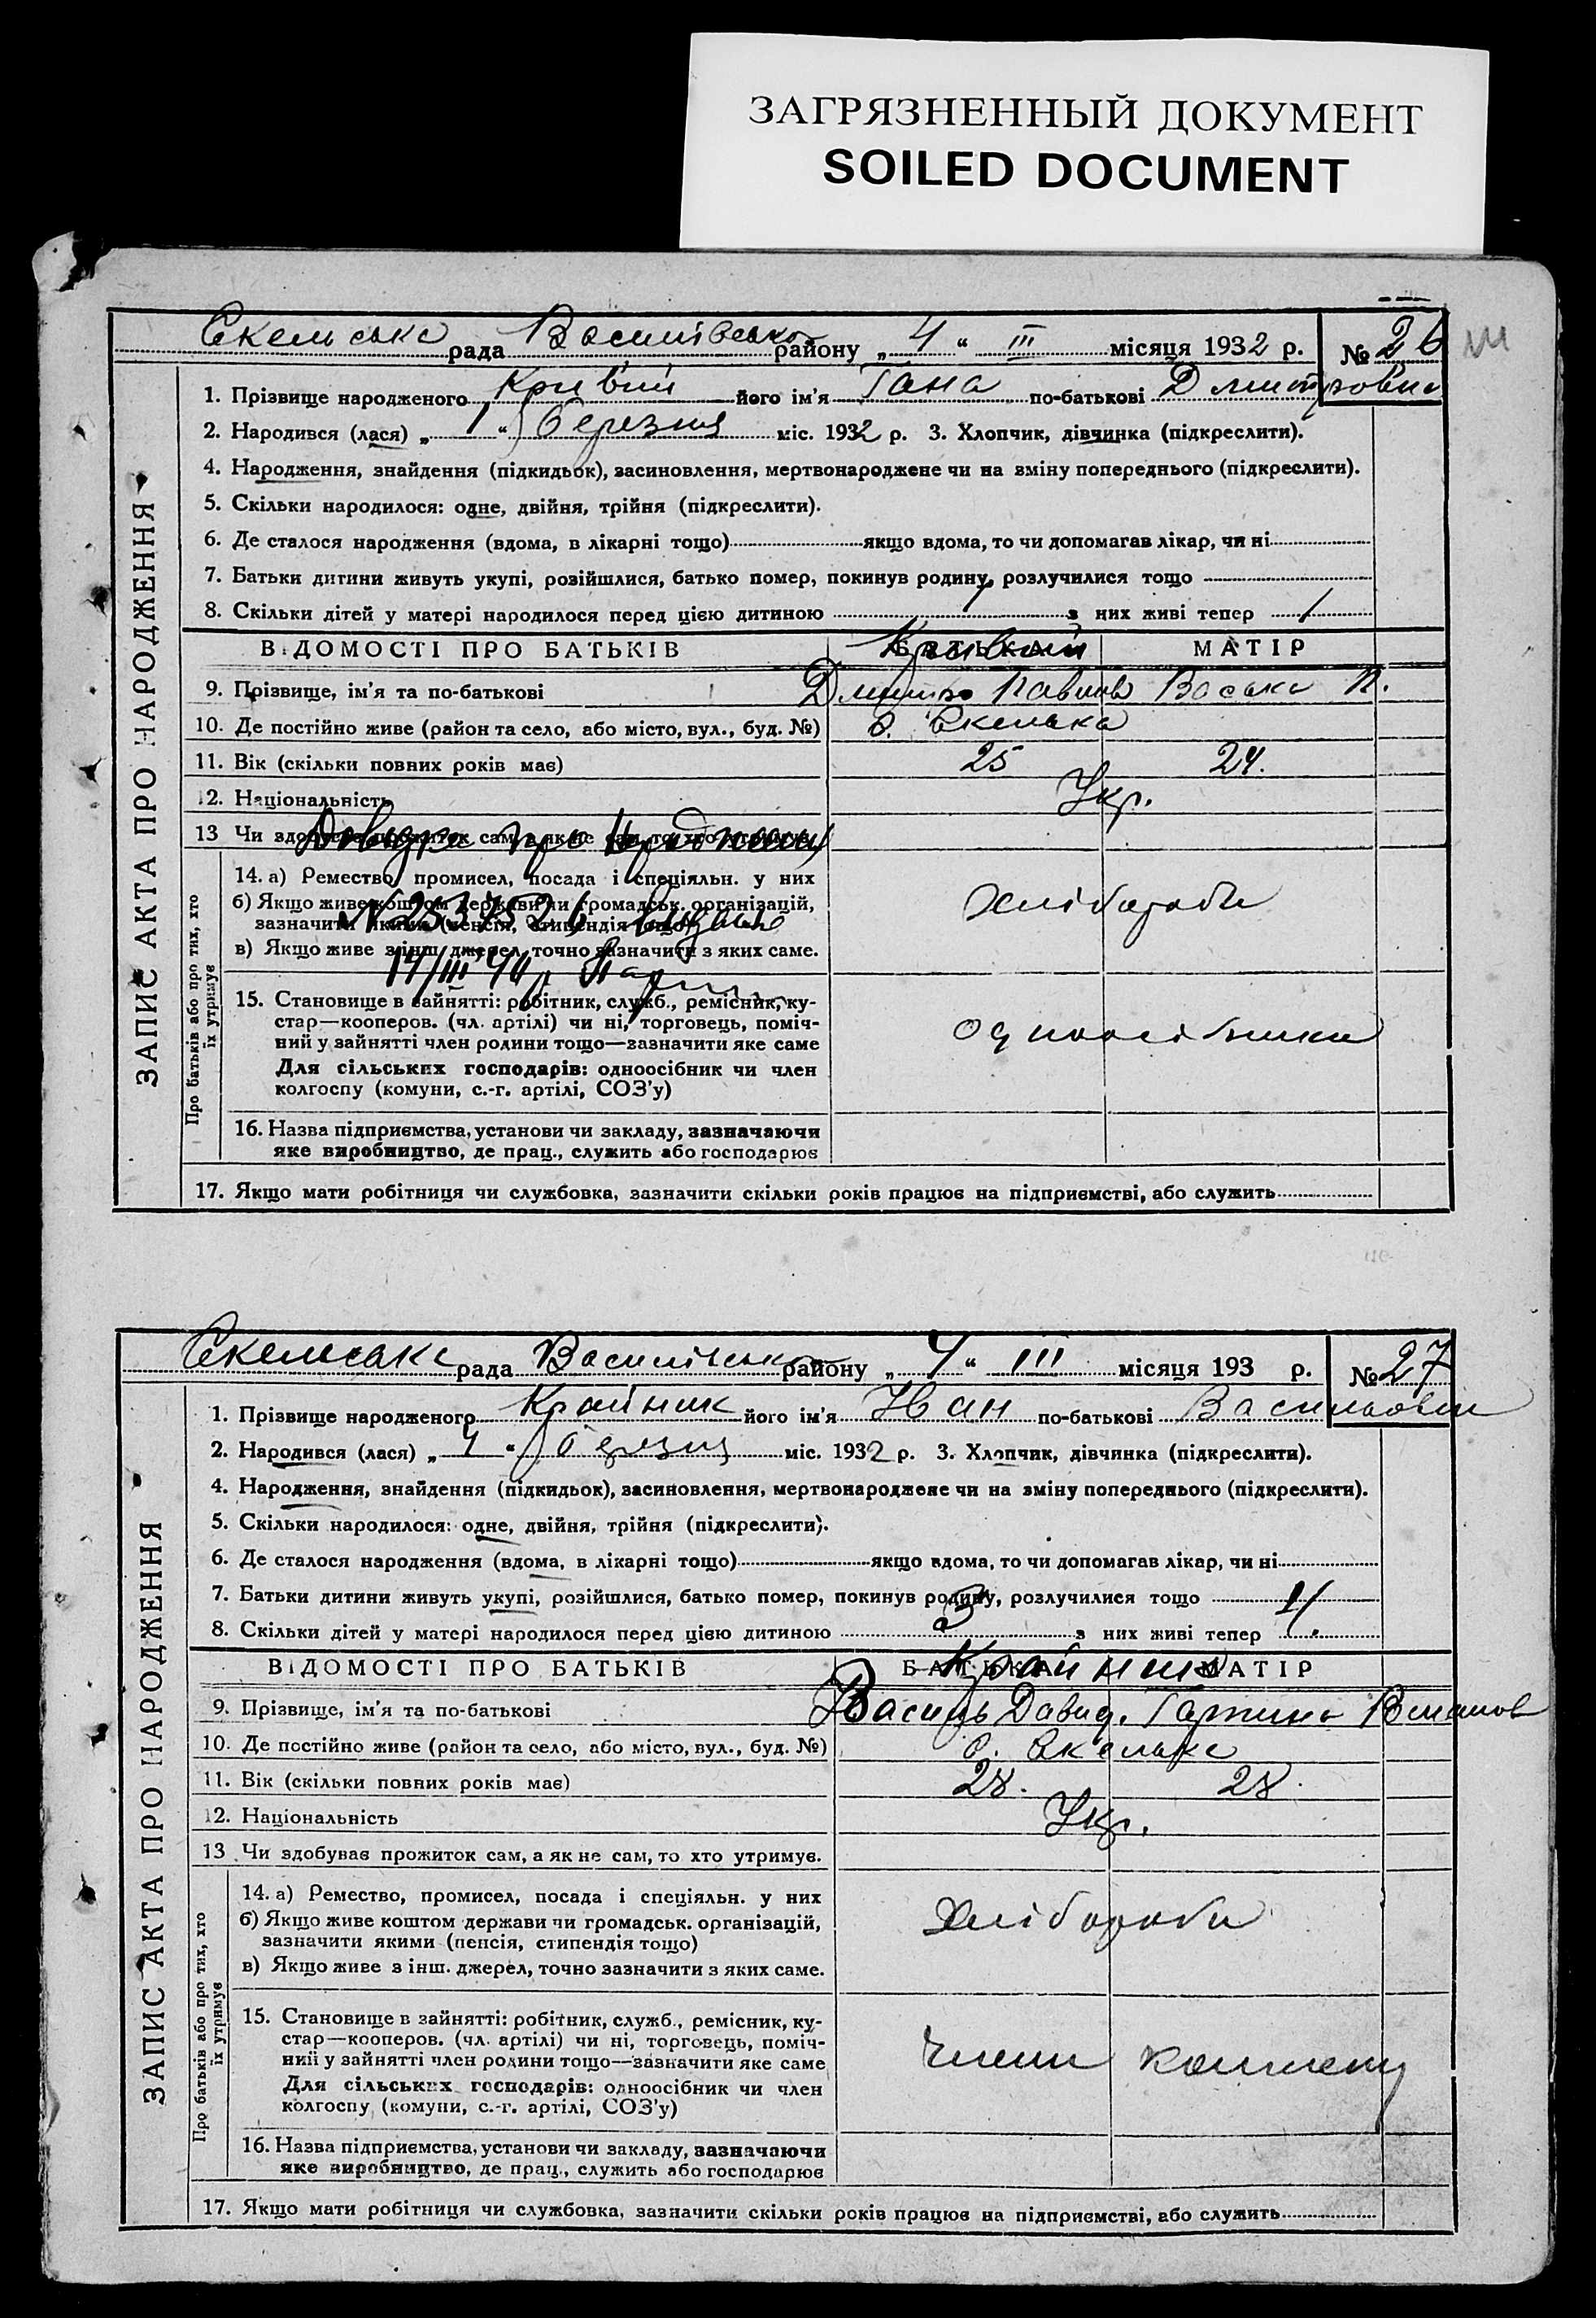 ЗАГРЯЗНЕННЫЙ ДОКУМЕНТ
SOILED DOCUMENT
Скельська рада Василівського району „ 4 “ III місяця 1932 р. № 26
ЗАПИС АКТА ПРО НАРОДЖЕННЯ
1. Прізвище народженого Кривий його ім’я Гана по-батькові Дмитровна
2. Народився (лася) „ 1 “ березня міс. 1932 р. 3. Хлопчик, дівчинка (підкреслити).
4. Народження, знайдення (підкидьок), засиновлення, мертвонароджене чи на зміну попереднього (підкреслити).
5. Скільки народилося: одне, двійня, трійня (підкреслити).
6. Де сталося народження (вдома, в лікарні тощо) якщо вдома, то чи допомагав лікар, чи ні
7. Батьки дитини живуть укупі, розійшлися, батько помер, покинув родину, розлучилися тощо
8. Скільки дітей у матері народилося перед цією дитиною 1 з них живі тепер 1
ВІДОМОСТІ ПРО БАТЬКІВ БАТЬКА МАТІР
Кривий
9. Прізвище, ім’я та по-батькові Дмитро Павлов Васька П.
10. Де постійно живе (район та село, або місто, вул., буд. №) с. Скелька
11. Вік (скільки повних років має) 25 24.
12. Національність Укр.
13 Чи здобуває прожиток сам, а як не сам, то хто утримує.
Довідка про
Про батьків або про тих, хто їх утримує
14. а) Ремество, промисел, посада і спеціяльн. у них
б) Якщо живе коштом держави чи громадськ. організацій,
зазначити якими (пенсія, стипендія тощо)
видана
в) Якщо живе з інш. джерел, точно зазначити з яких саме.
Хлібороби
15. Становище в зайнятті: робітник, служб., ремісник, ку-
стар—кооперов. (чл. артілі) чи ні, торговець, поміч-
ний у зайнятті член родини тощо—зазначити яке саме
Для сільських господарів: одноосібник чи член
колгоспу (комуни, с.-г. артілі, СОЗ’у)
одноосібники
16. Назва підприємства, установи чи закладу, зазначаючи
яке виробництво, де прац., служить або господарює
17. Якщо мати робітниця чи службовка, зазначити скільки років працює на підприємстві, або служить
Скельська рада Василівського району „ 4 “ III місяця 193 р. № 27
ЗАПИС АКТА ПРО НАРОДЖЕННЯ
1. Прізвище народженого Крайник його ім’я Иван по-батькові Васильовіч
2. Народився (лася) „ 4 “ березня міс. 1932 р. 3. Хлопчик, дівчинка (підкреслити).
4. Народження, знайдення (підкидьок), засиновлення, мертвонароджене чи на зміну попереднього (підкреслити).
5. Скільки народилося: одне, двійня, трійня (підкреслити).
6. Де сталося народження (вдома, в лікарні тощо) якщо вдома, то чи допомагав лікар, чи ні
7. Батьки дитини живуть укупі, розійшлися, батько помер, покинув родину, розлучилися тощо
8. Скільки дітей у матері народилося перед цією дитиною 3 з них живі тепер
ВІДОМОСТІ ПРО БАТЬКІВ БАТЬКА МАТІР
9. Прізвище, ім’я та по-батькові Василь Давид.
10. Де постійно живе (район та село, або місто, вул., буд. №) с. Скелька
11. Вік (скільки повних років має) 28. 28.
12. Національність Укр.
13 Чи здобуває прожиток сам, а як не сам, то хто утримує.
Про батьків або про тих, хто їх утримує
14. а) Ремество, промисел, посада і спеціяльн. у них
б) Якщо живе коштом держави чи громадськ. організацій,
зазначити якими (пенсія, стипендія тощо)
в) Якщо живе з інш. джерел, точно зазначити з яких саме.
Хлібороби
15. Становище в зайнятті: робітник, служб., ремісник, ку-
стар—кооперов. (чл. артілі) чи ні, торговець, поміч-
ний у зайнятті член родини тощо—зазначити яке саме
Для сільських господарів: одноосібник чи член
колгоспу (комуни, с.-г. артілі, СОЗ’у)
члени
16. Назва підприємства, установи чи закладу, зазначаючи
яке виробництво, де прац., служить або господарює
17. Якщо мати робітниця чи службовка, зазначити скільки років працює на підприємстві, або служить